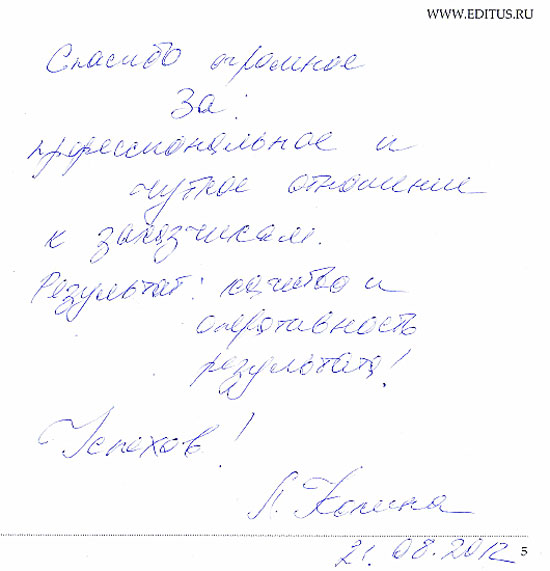 WWW.EDITUS.RU
Спасибо огромное
За:
профессиональное и
чуткое отношение
к заказчикам.
Результат: качество и
оперативность
результата!
Успехов!
Л. Калина
21.08.2012
5